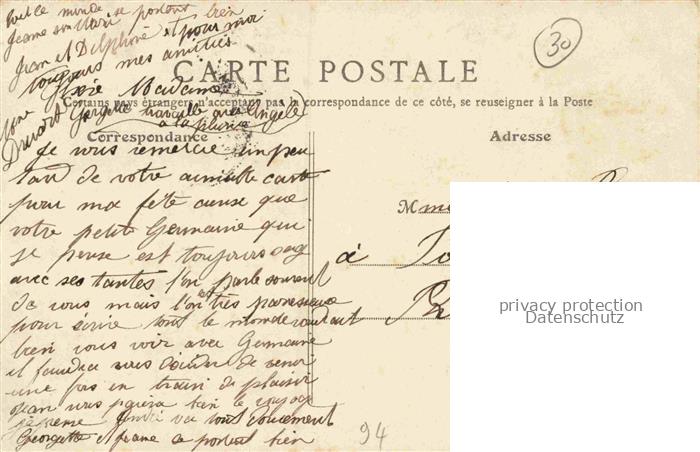 tout le monde se portent bien
Jeanne son Mari
Jean et Delphine et pour moi
toujours mes amitiés
30
CARTE POSTALE
Madame
Certains pays étrangers n'acceptant pas la correspondance de ce côté, se renseigner à la Poste
Georgette travaille avec Angèle
à la
Correspondance
Adresse
Je vous remercie un peu
tard de votre aimable carte
pour ma fête ainsi que
votre petite Germaine qui
je pense est toujours sage
avec ses tantes l'on parle souvent
de vous mais l'on est très paresseuse
pour écrire tout le monde voudrait
bien vous voir avec Germaine
il faudra vous décider de venir
une fois en train de plaisir
Jean vous paiera bien le voyage
va tout doucement
Georgette et se portent bien
Mme
à
94
privacy protection
Datenschutz